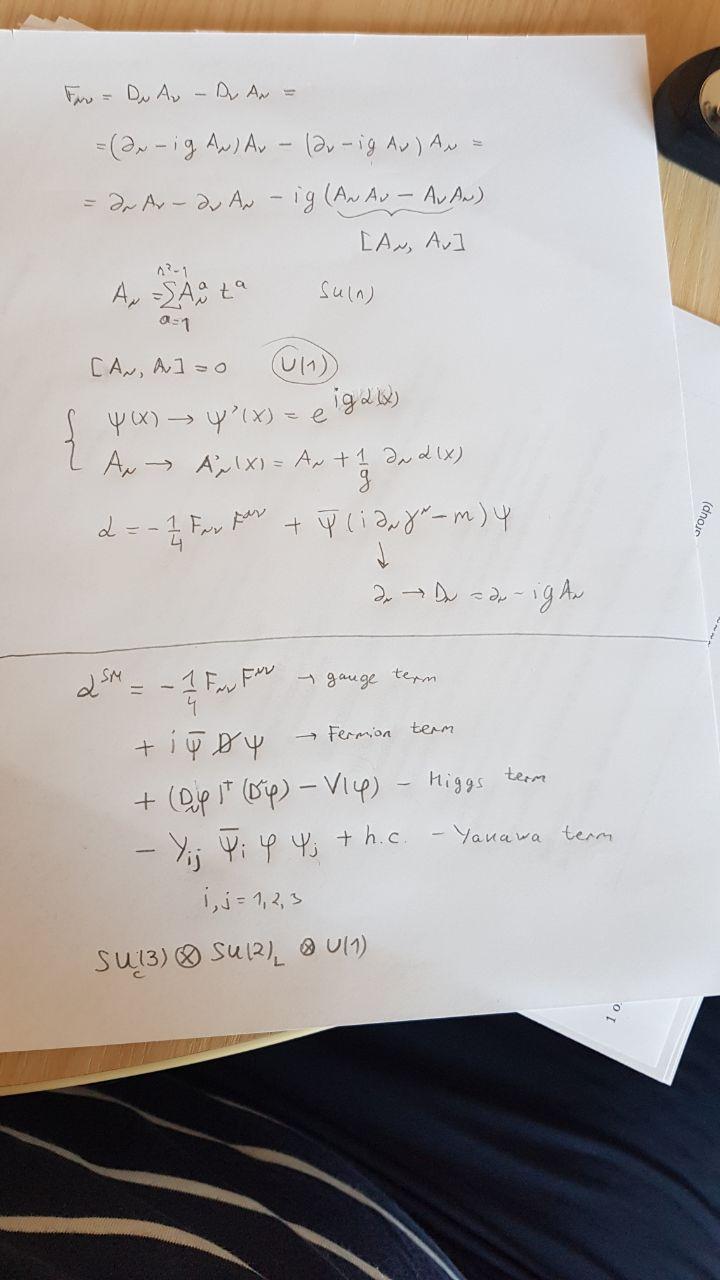 Fμν = Dμ Aν − Dν Aμ =
= (∂μ − ig Aμ) Aν − (∂ν − ig Aν) Aμ =
= ∂μ Aν − ∂ν Aμ − ig (Aμ Aν − Aν Aμ)
[Aμ, Aν]
Aμ = ∑_{a=1}^{n²−1} Aμ^a t^a   SU(n)
[Aμ, Aν] = 0   U(1)
ψ(x) → ψ'(x) = e^{igα(x)}
Aμ → A'μ(x) = Aμ + 1/g ∂μ α(x)
ℒ = −1/4 Fμν F^{μν} + ψ̄ (i ∂μ γ^μ − m) ψ
↓
∂μ → Dμ = ∂μ − ig Aμ
ℒ^{SM} = −1/4 Fμν F^{μν} → gauge term
+ i ψ̄ D̸ ψ → Fermion term
+ (Dμφ)† (D^μφ) − V(φ) − Higgs term
− Yij ψ̄i φ ψj + h.c. − Yauawa term
i, j = 1, 2, 3
SUc(3) ⊗ SU(2)L ⊗ U(1)
Group)